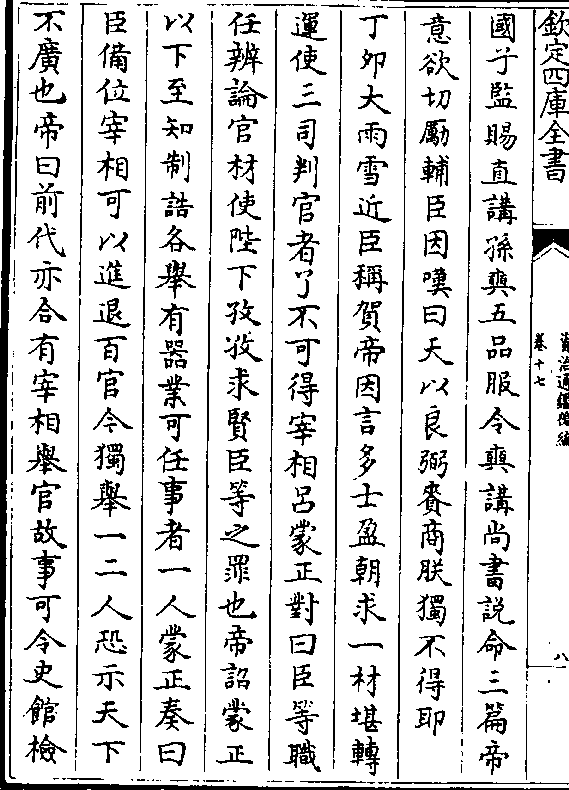 欽定四庫全書
資治通鑑後編
卷十七
八
國子監賜直講孫奭五品服令奭講尚書説命三篇帝
意欲切勵輔臣因嘆曰天以良弼賚商朕獨不得耶
丁卯大雨雪近臣稱賀帝因言多士盈朝求一材堪轉
運使三司判官者了不可得宰相呂蒙正對曰臣等職
任辨論官材使陛下孜孜求賢臣等之罪也帝詔蒙正
以下至知制誥各舉有器業可任事者一人蒙正奏曰
臣備位宰相可以進退百官今獨舉一二人恐示天下
不廣也帝曰前代亦合有宰相舉官故事可令史館檢